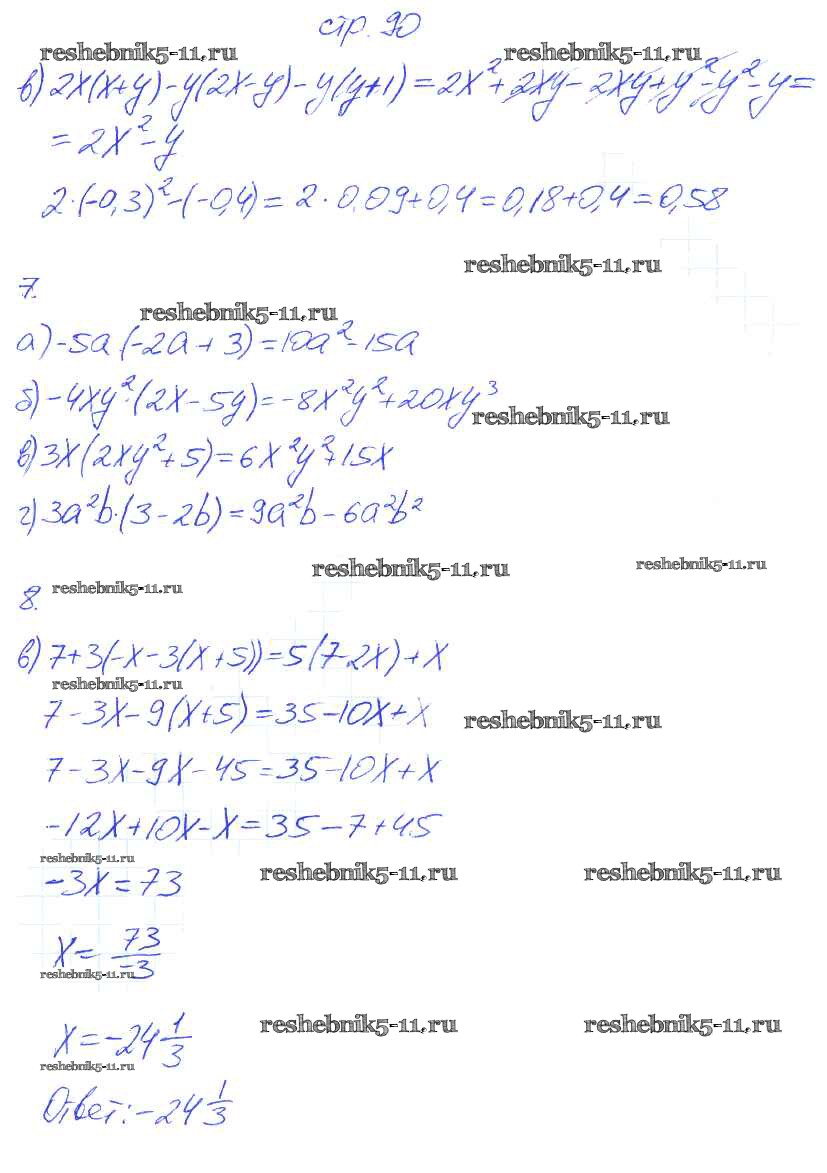 стр. 90
reshebnik5-11.ru reshebnik5-11.ru
в) 2x(x+y)-y(2x-y)-y(y+1)=2x²+2xy-2xy+y²-y²-y=
=2x²-y
2·(-0,3)²-(-0,4)=2·0,09+0,4=0,18+0,4=0,58
reshebnik5-11.ru
7.
reshebnik5-11.ru
а) -5a·(-2a+3)=10a²-15a
б) -4xy²·(2x-5y)=-8x²y²+20xy³
reshebnik5-11.ru
в) 3x(2xy²+5)=6x²y²+15x
г) 3a²b·(3-2b)=9a²b-6a²b²
reshebnik5-11.ru reshebnik5-11.ru
8. reshebnik5-11.ru
в) 7+3(-x-3(x+5))=5(7-2x)+x
reshebnik5-11.ru
7-3x-9(x+5)=35-10x+x
reshebnik5-11.ru
7-3x-9x-45=35-10x+x
-12x+10x-x=35-7+45
reshebnik5-11.ru reshebnik5-11.ru reshebnik5-11.ru
-3x=73
x=73/-3
reshebnik5-11.ru
x=-24 1/3
reshebnik5-11.ru reshebnik5-11.ru
reshebnik5-11.ru
Ответ: -24 1/3